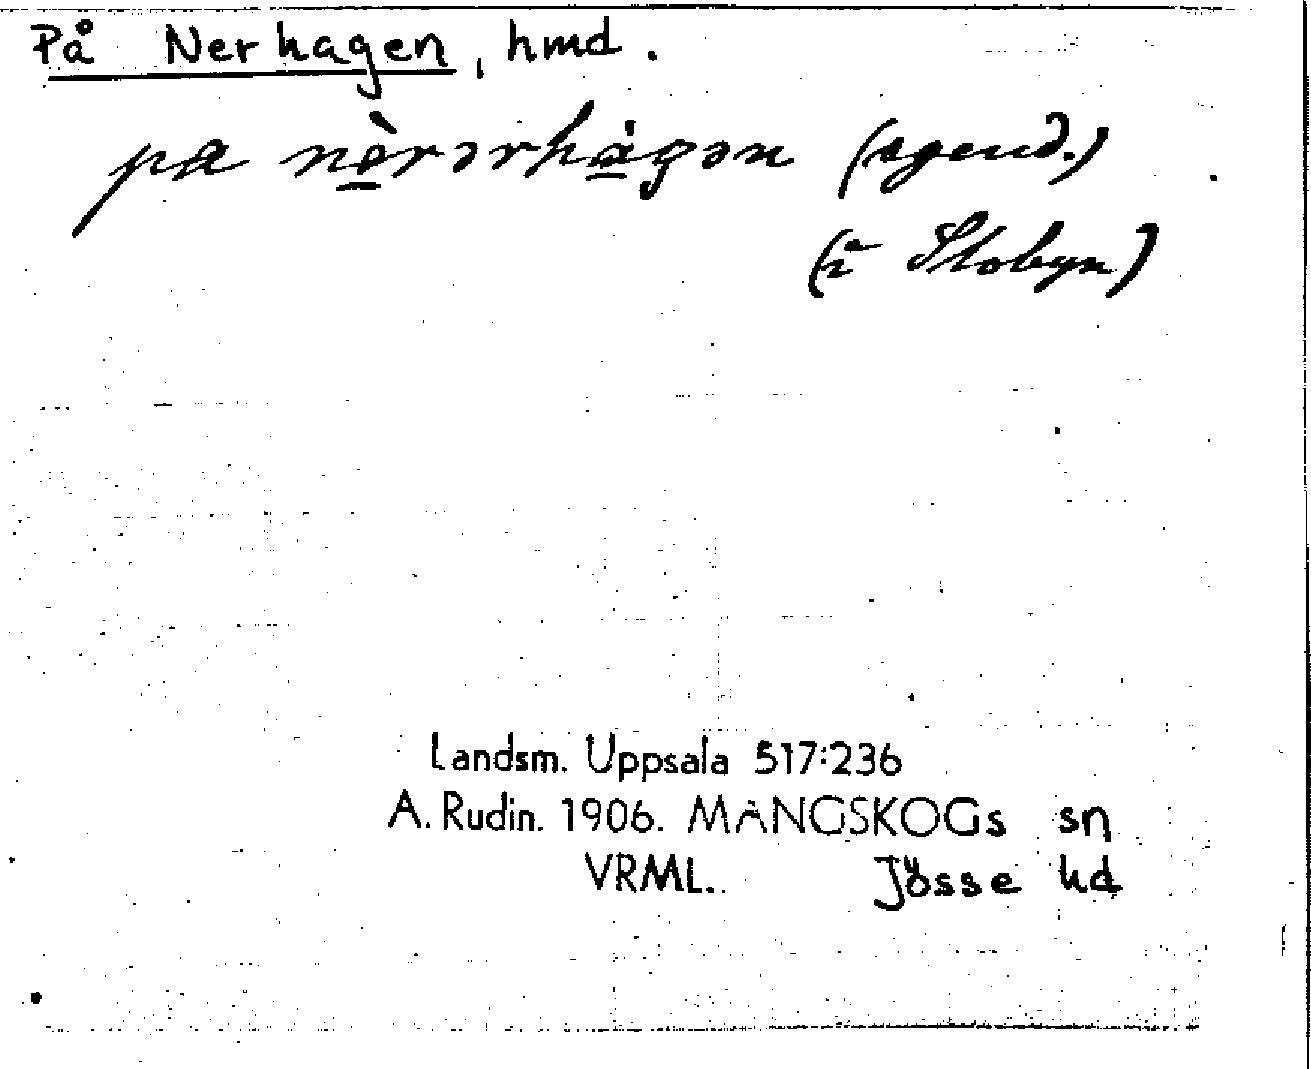 På Nerhagen, hmd.
pa nèrərhȧgən (egend.)
(i Slobyn)
Landsm. Uppsala 517:236
A. Rudin. 1906. MANGSKOGs sn
VRML. Jösse hd